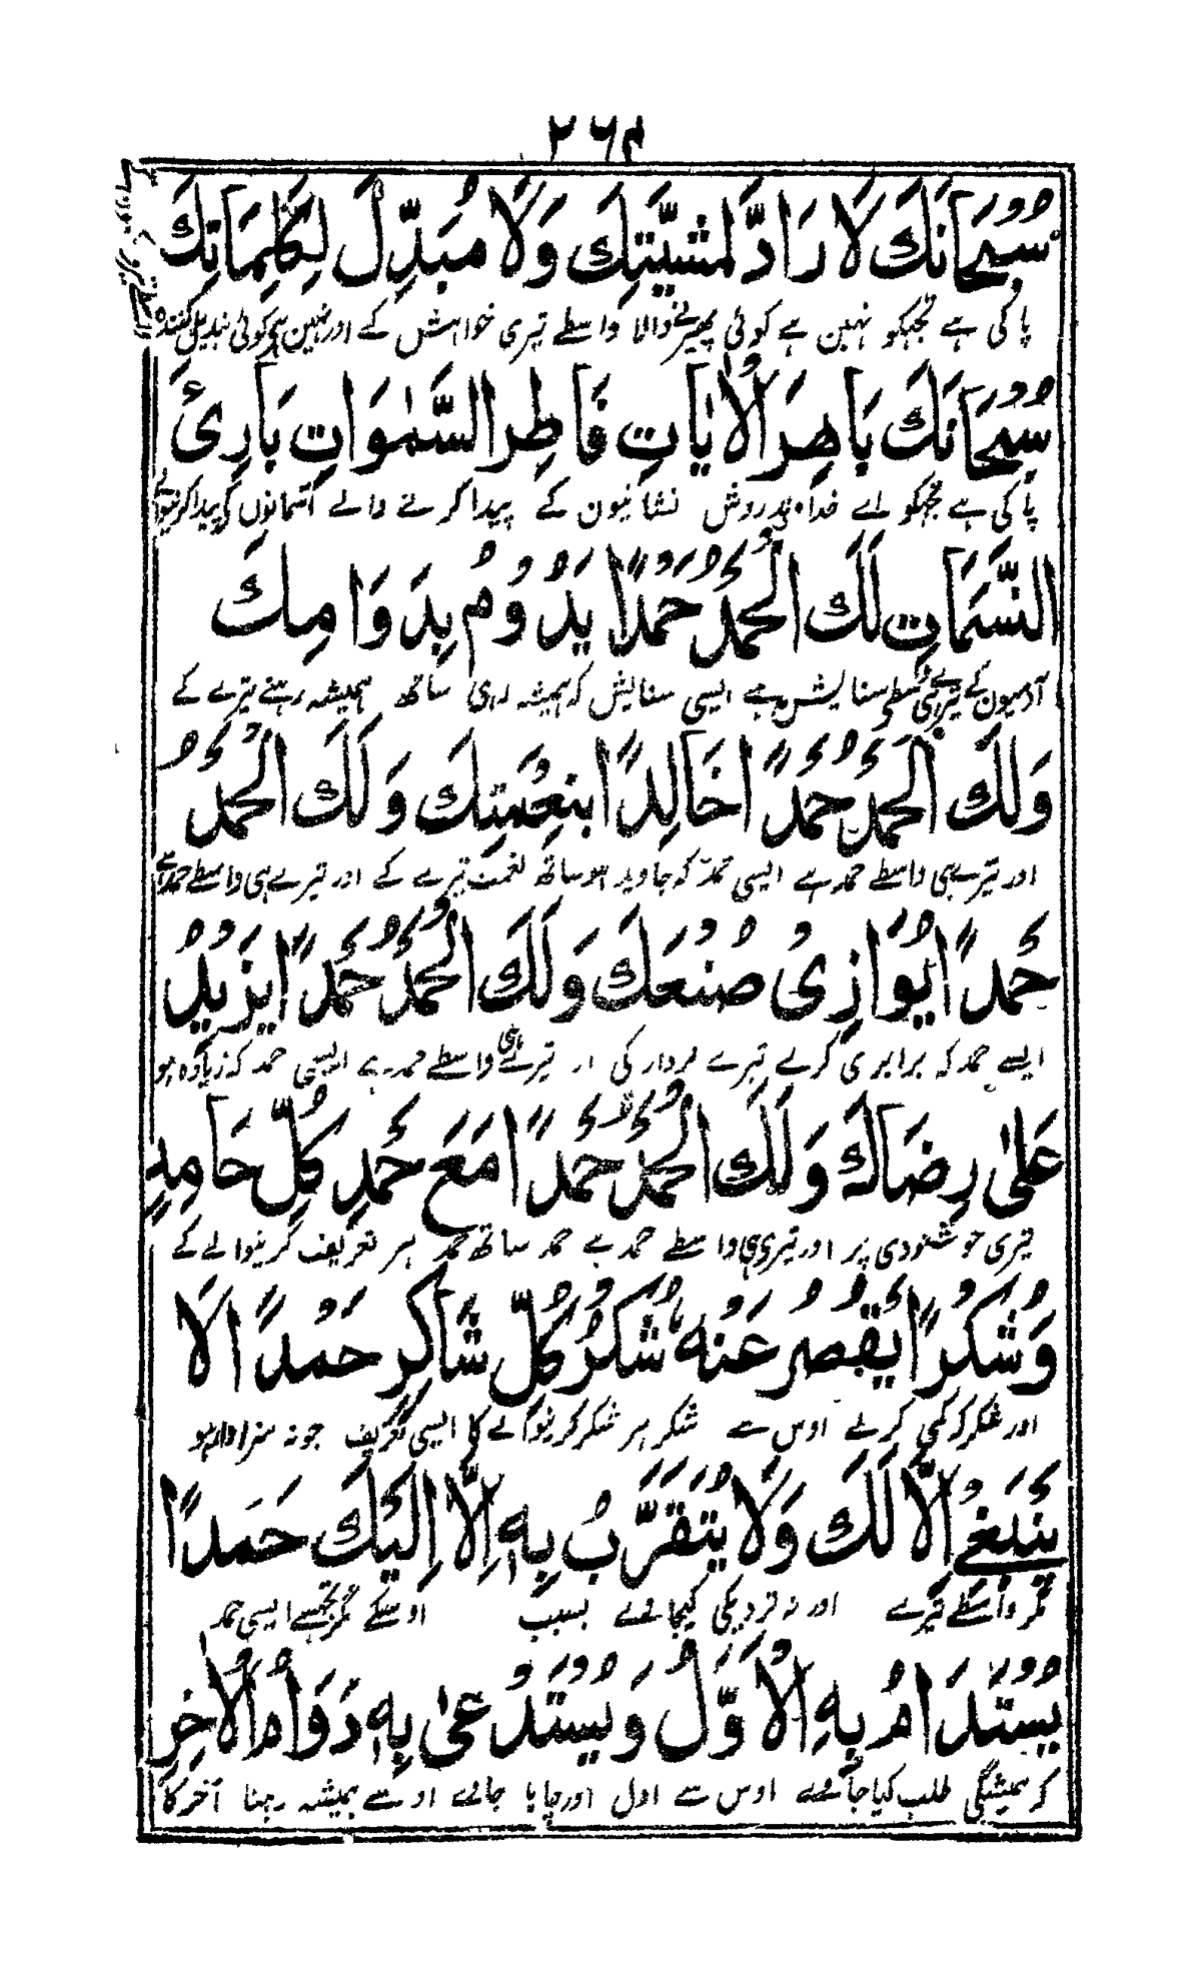 ۲۶۴
سُبْحَانَكَ لَا رَادَّ لِمَشِيَّتِكَ وَلَا مُبَدِّلَ لِكَلِمَاتِكَ
پاکی ہے تجہکو نہین ہے کوئی پھیرنے والا واسطے تیری خواہش کے اور نہین ہے کوئی تبدیل کنندہ
سُبْحَانَكَ بَاهِرَ الْاٰيَاتِ فَاطِرَ السَّمٰوَاتِ بَارِئَ
پاکی ہے تجہکو اے روشن نشانیون کے پیدا کرنے والے آسمانوں کے پیدا کرنیوالے
النَّسَمَاتِ لَكَ الْحَمْدُ حَمْدًا يَدُوْمُ بِدَوَامِكَ
آدمیون کے ستایش ہے ایسی ستایش کہ ہمیشہ رہی ساتھ ہمیشہ رہنے تیرے کے
وَلَكَ الْحَمْدُ حَمْدًا خَالِدًا بِنِعْمَتِكَ وَلَكَ الْحَمْدُ
اور تیرے ہی واسطے حمد ہے ایسی حمد کہ جاوید ہو ساتھ نعمت تیرے کے اور تیرے ہی واسطے حمد ہے
حَمْدًا يُوَازِىْ صُنْعَكَ وَلَكَ الْحَمْدُ حَمْدًا يَزِيْدُ
ایسے حمد کہ برابری کرے تیرے کی تیرے ہی واسطے حمد ہے ایسی حمد کہ زیادہ ہو
عَلٰى رِضَاكَ وَلَكَ الْحَمْدُ حَمْدًا مَعَ حَمْدِ كُلِّ حَامِدٍ
تیری خوشنودی پر اور تیری ہی واسطے حمد ہے حمد ساتھ حمد ہر تعریف کرنیوالے کے
وَشُكْرًا يَقْصُرُ عَنْهُ شُكْرُ كُلِّ شَاكِرٍ حَمْدًا لَا
اور شکر کہ کمی کرے اوس سے شکر ہر شکر کرنیوالے کا ایسی تعریف جو نہ سزاوار ہو
يَنْبَغِىْ اِلَّا لَكَ وَلَا يُتَقَرَّبُ بِهٖ اِلَّا اِلَيْكَ حَمْدًا
مگر واسطے تیرے اور نہ نزدیکی کیجاوے بسبب اوسکے مگر تجھسے ایسی حمد
يُسْتَدَامُ بِهِ الْاَوَّلُ وَيُسْتَدْعٰى بِهٖ دَوَامُ الْاٰخِرِ
کر ہمیشگی طلب کیا جاوے اوس سے اول اور چاہا جاے اوسے ہمیشہ رہنا آخر کا